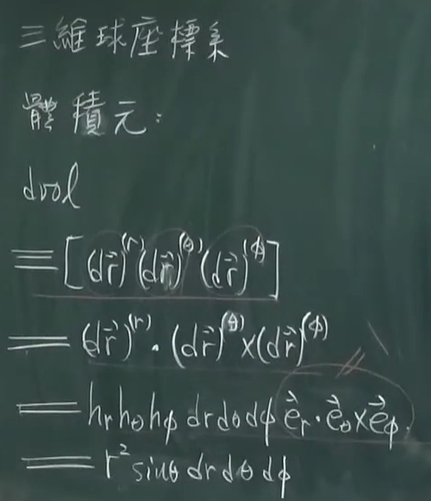 三維球座標系
體積元：
dvol
≡[(dr⃗)⁽ʳ⁾(dr⃗)⁽ᶿ⁾(dr⃗)⁽ᶲ⁾]
=(dr⃗)⁽ʳ⁾·(dr⃗)⁽ᶿ⁾×(dr⃗)⁽ᶲ⁾
=hᵣ h_θ h_ϕ dr dθ dϕ e⃗ᵣ·e⃗_θ×e⃗_ϕ.
=r² sinθ dr dθ dϕ